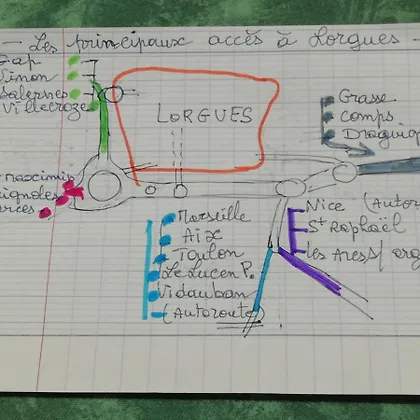 - Les principaux accès à Lorgues -
Gap
Vinon
Salernes
Villecroze
LORGUES
Grasse
Comps
Marseille
Aix
Toulon
Le Luc en P.
Vidauban
(Autoroute)
Nice
St Raphaël
Les Arcs/